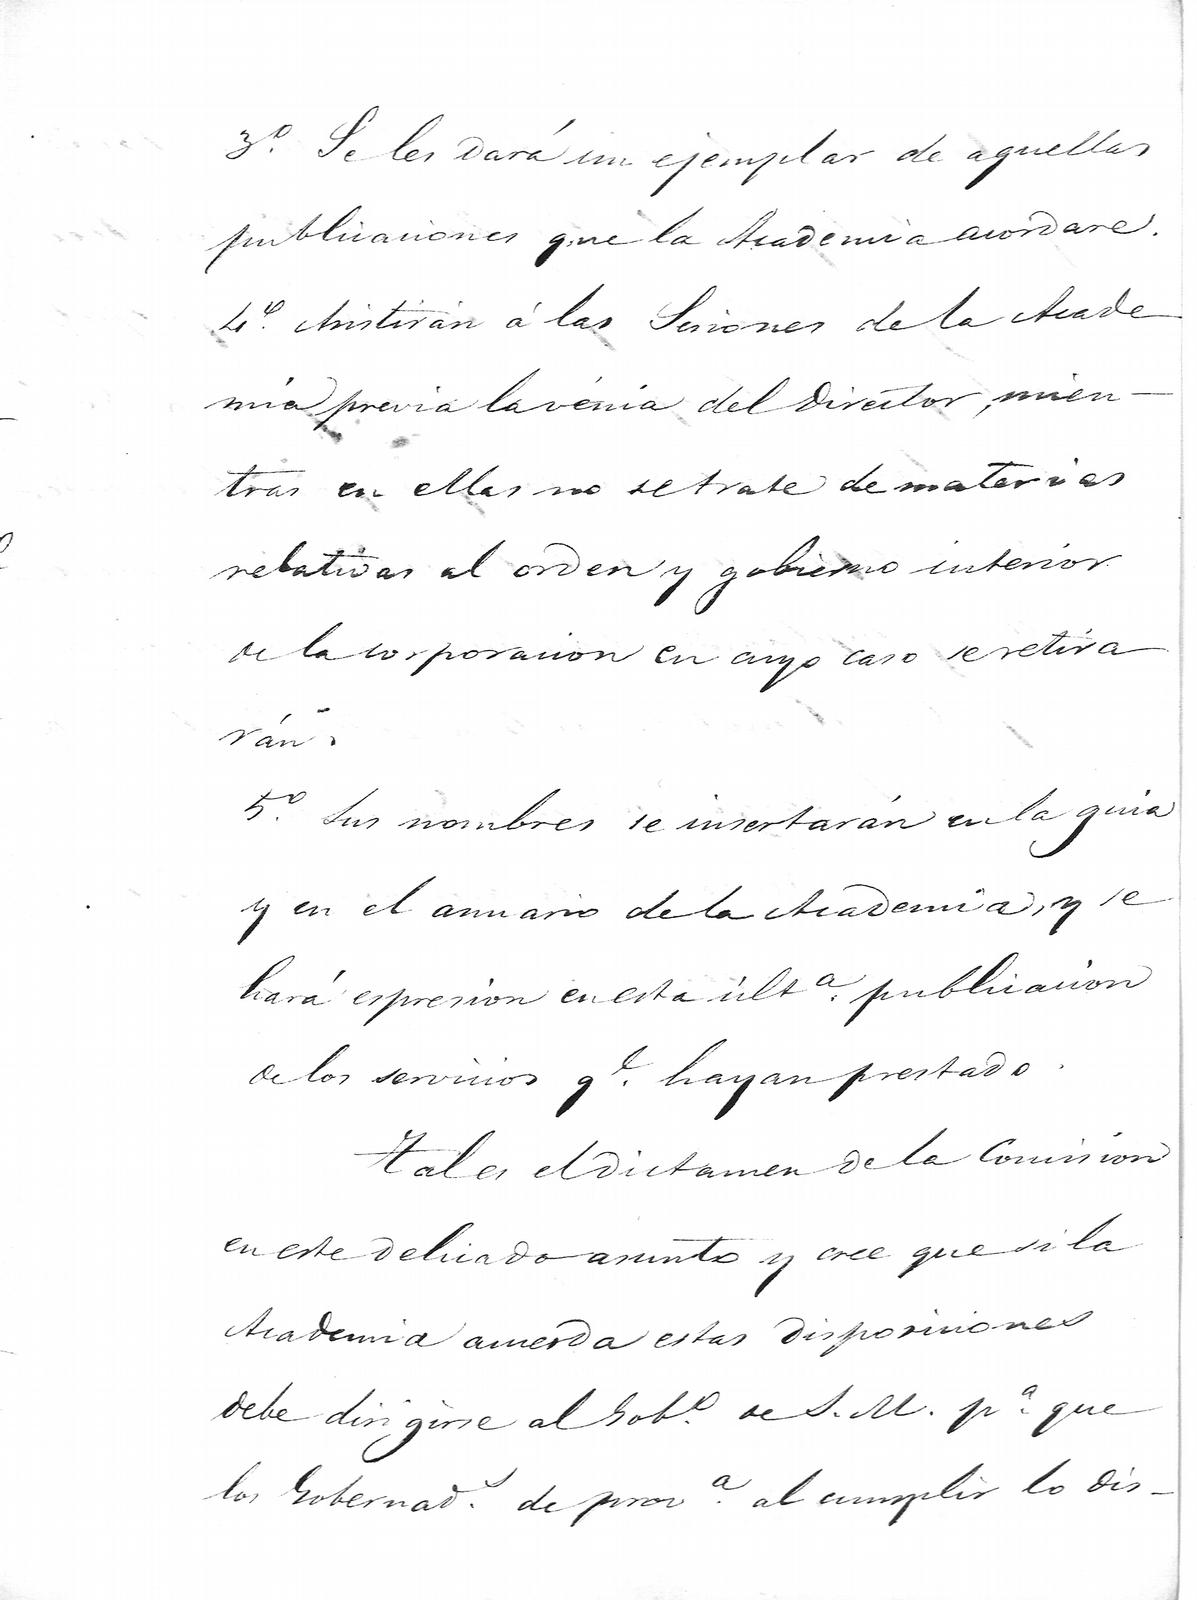 3º. Se les dará un ejemplar de aquellas
publicaciones que la Academia acordare.
4º. Asistirán á las Sesiones de la Acade
mia previa la vénia del Director, mien-
tras en ellas no se trate de materias
relativas al orden y gobierno interior
de la corporacion en cuyo caso se retira
rán.
5º. Sus nombres se insertarán en la guia
y en el anuario de la Academia, y se
hará espresion en esta últª. publicacion
de los servicios qe. hayan prestado.
Tal es el dictamen de la Comision
en este delicado asunto y cree que si la
Academia acuerda estas disposiciones
debe dirigirse al Gobº. de S. M. pª. que
los Gobernads. de provª. al cumplir lo dis-